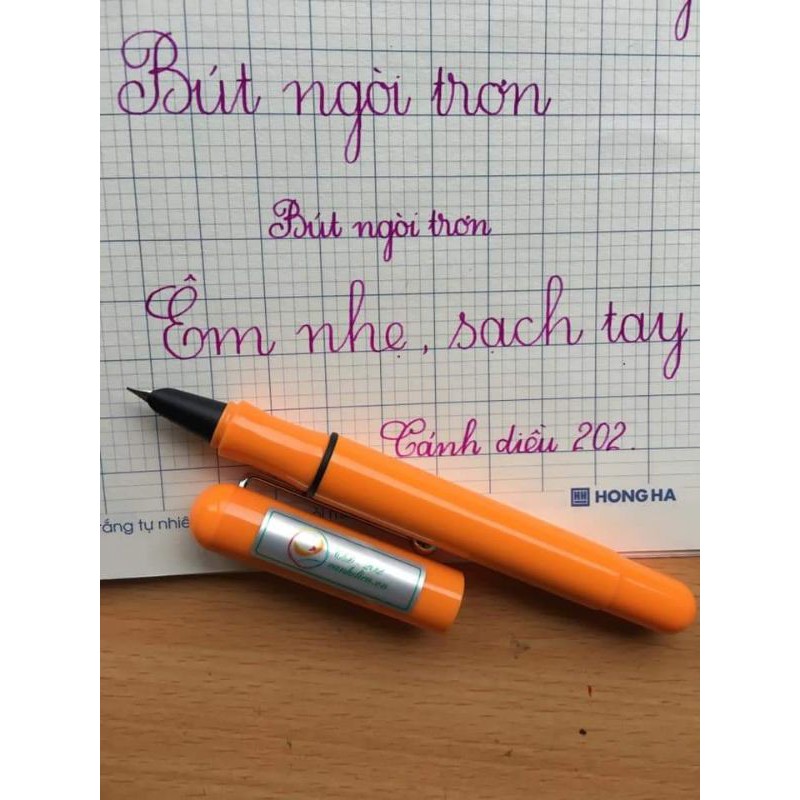 Bút ngòi trơn
Bút ngòi trơn
Êm nhẹ, sạch tay
Cánh diều 202.
HONG HA
ắng tự nhiê